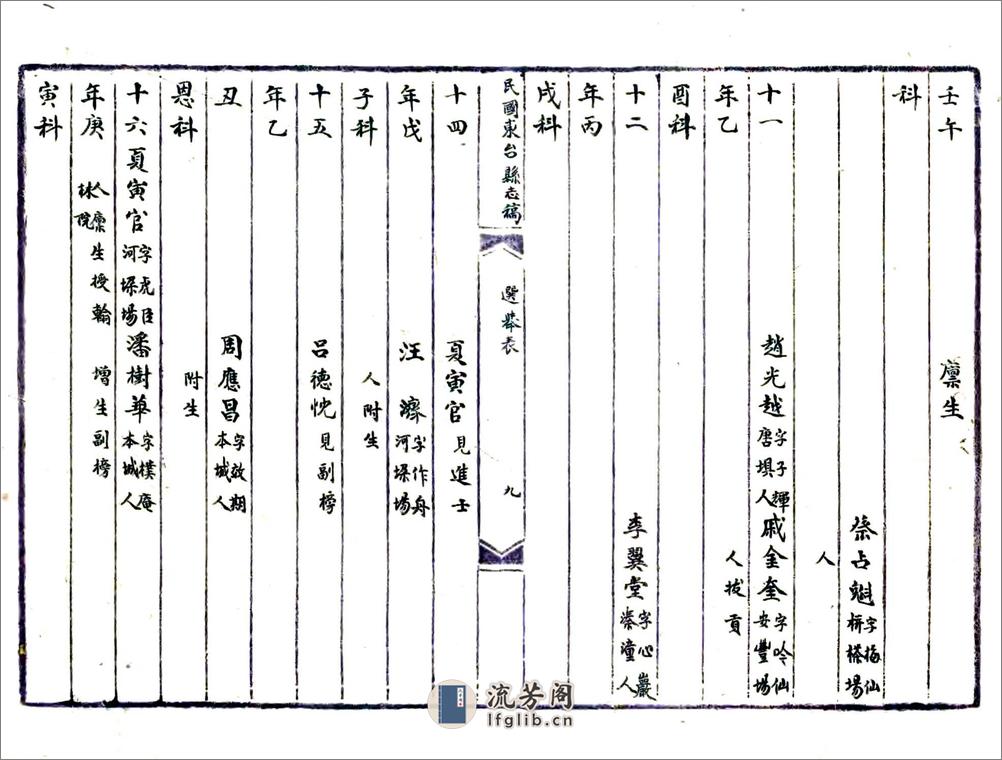 壬午 廩生
科
蔡占魁 字梅仙 栟楂場
人
十一 趙光越 字子輝 唐垻人 戚金奎 字吟仙 安豐場
年乙 人拔貢
酉科
十二 李翼堂 字心巖 溱潼人
年丙
戌科
民國東台縣志稿 選舉表 九
十四 夏寅官 見進士
年戊 汪濟 字作舟 河垛場
子科 人附生
十五 呂德忱 見副榜
年乙
丑 周應昌 字效期 本城人
恩科 附生
十六 夏寅官 字虎臣 河垛場 潘樹華 字樸庵 本城人
年庚 人廩生授翰林院 增生副榜
寅科
流芳阁
lfglib.cn